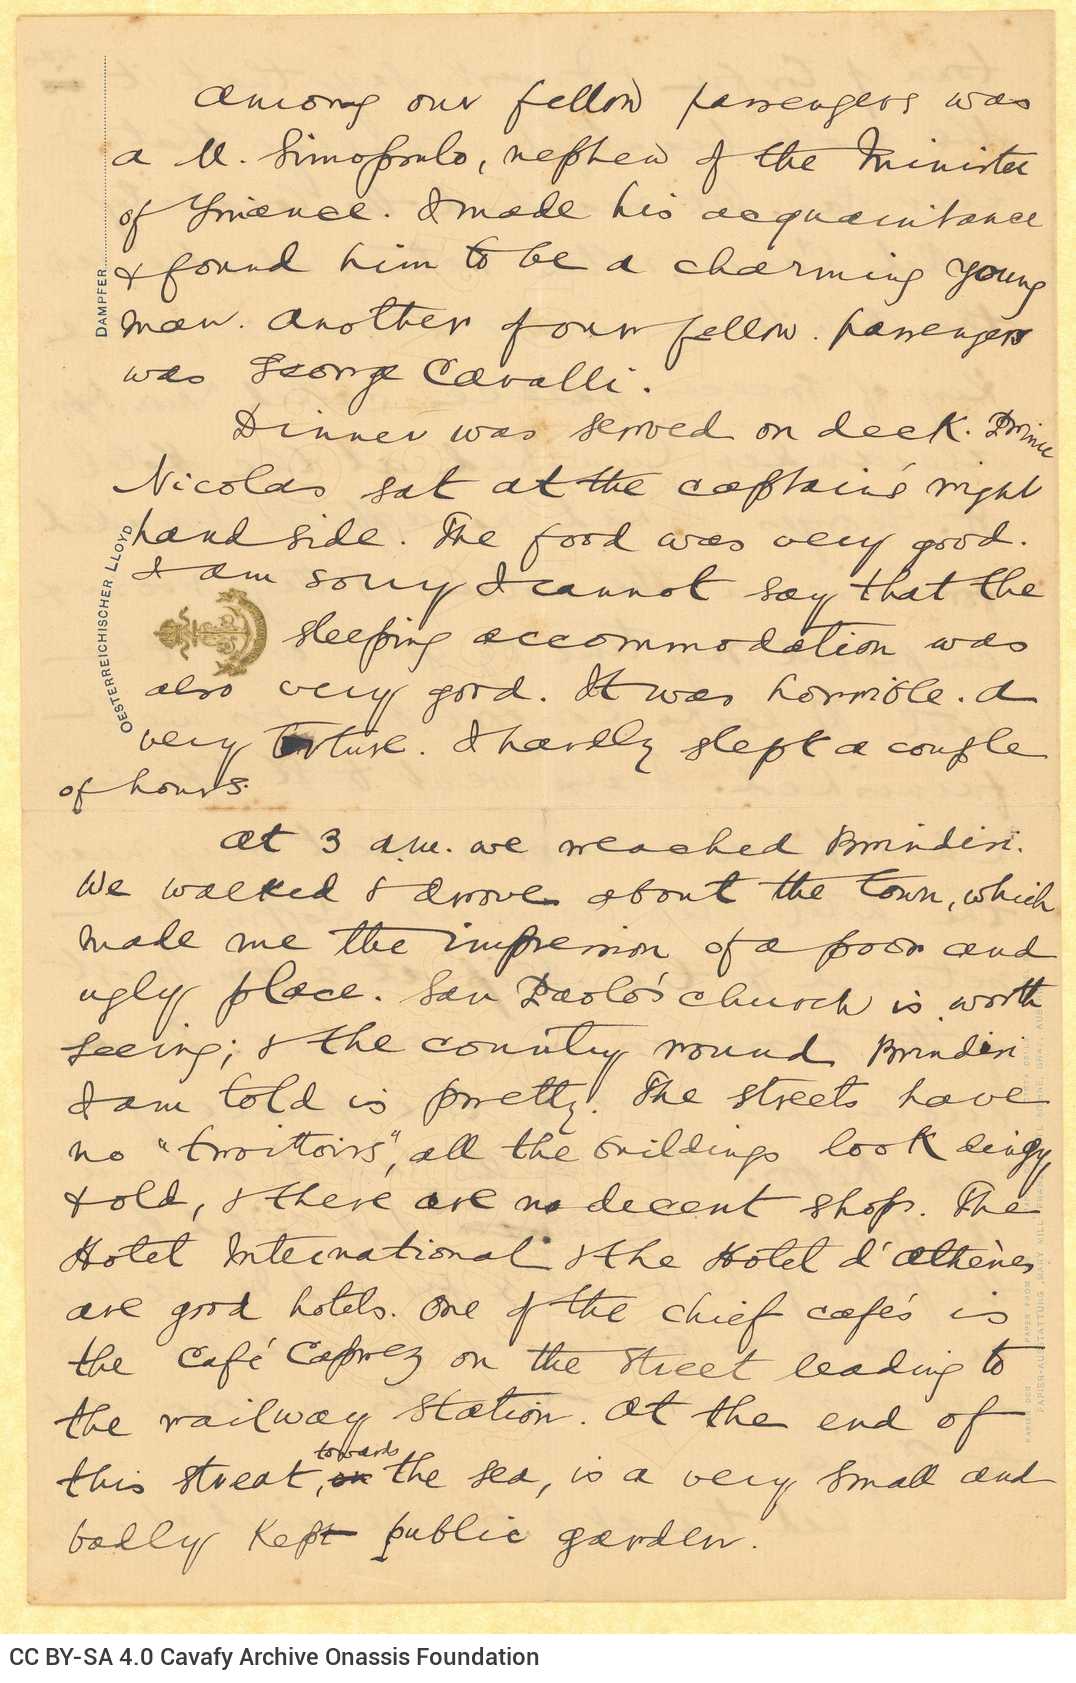 Among our fellow passengers was
a M. Simopoulo, nephew of the Minister
of Finance. I made his acquaintance
& found him to be a charming young
man. Another of our fellow passengers
was George Cavalli.
Dinner was served on deck. Prince
Nicolas sat at the captain's right
hand side. The food was very good.
I am sorry I cannot say that the
sleeping accommodation was
also very good. It was horrible. A
very torture. I hardly slept a couple
of hours.
At 3 a.m. we reached Brindisi.
We walked & drove about the town, which
made me the impression of a poor and
ugly place. San Paolo's church is worth
seeing; & the country round Brindisi
I am told is pretty. The streets have
no "trottoirs", all the buildings look dingy
& old, & there are no decent shops. The
Hotel International & the Hotel d'Athènes
are good hotels. One of the chief cafés is
the Café Caprez on the street leading to
the railway station. At the end of
this street, on towards the sea, is a very small and
badly kept public garden.
DAMPFER
OESTERREICHISCHER LLOYD
CC BY-SA 4.0 Cavafy Archive Onassis Foundation